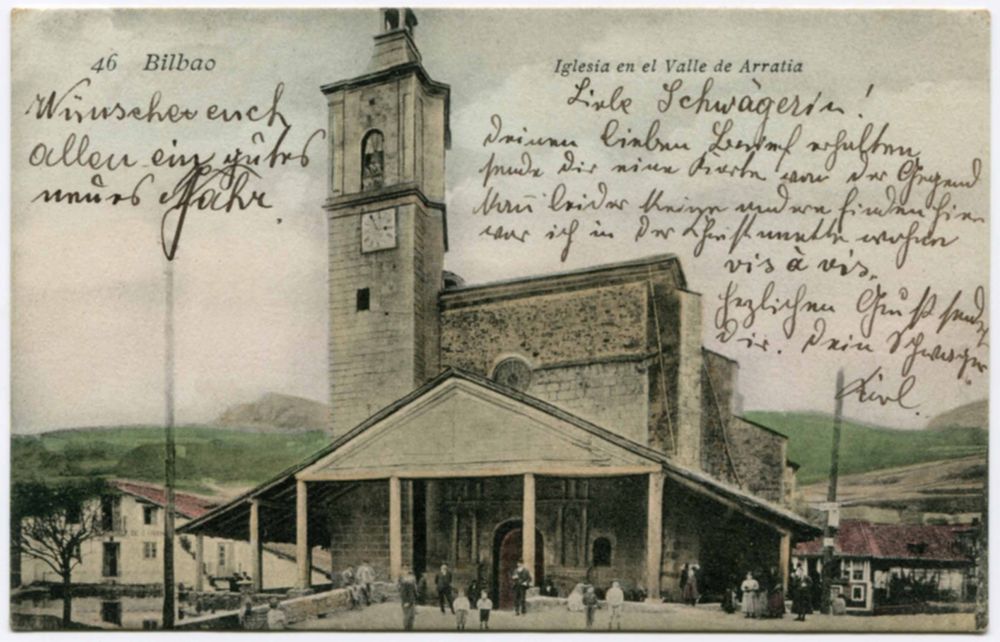 46 Bilbao
Iglesia en el Valle de Arratia
Wünsche euch
allen ein gutes
neues Jahr.
Liebe Schwägerin!
Deinen lieben Brief erhalten
sende dir eine Karte von der Gegend
Kann leider keine andere finden hier
war ich in der Christmette wohnen
vis à vis.
Herzlichen Gruß sendet
dir. Dein Schwager
Karl.